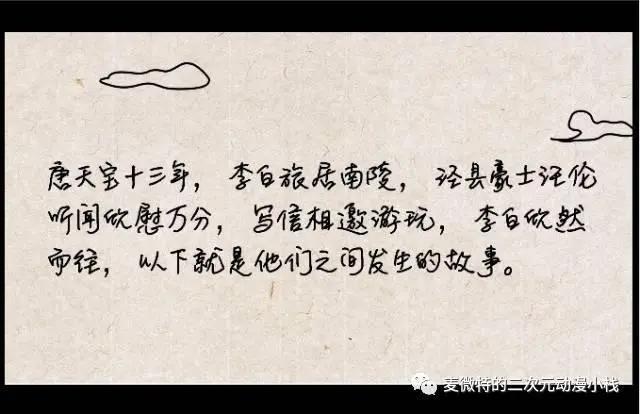 唐天宝十三年，李白旅居南陵，泾县豪士汪伦
听闻欣慰万分，写信相邀游玩，李白欣然
而往，以下就是他们之间发生的故事。
麦微特的二次元动漫小栈